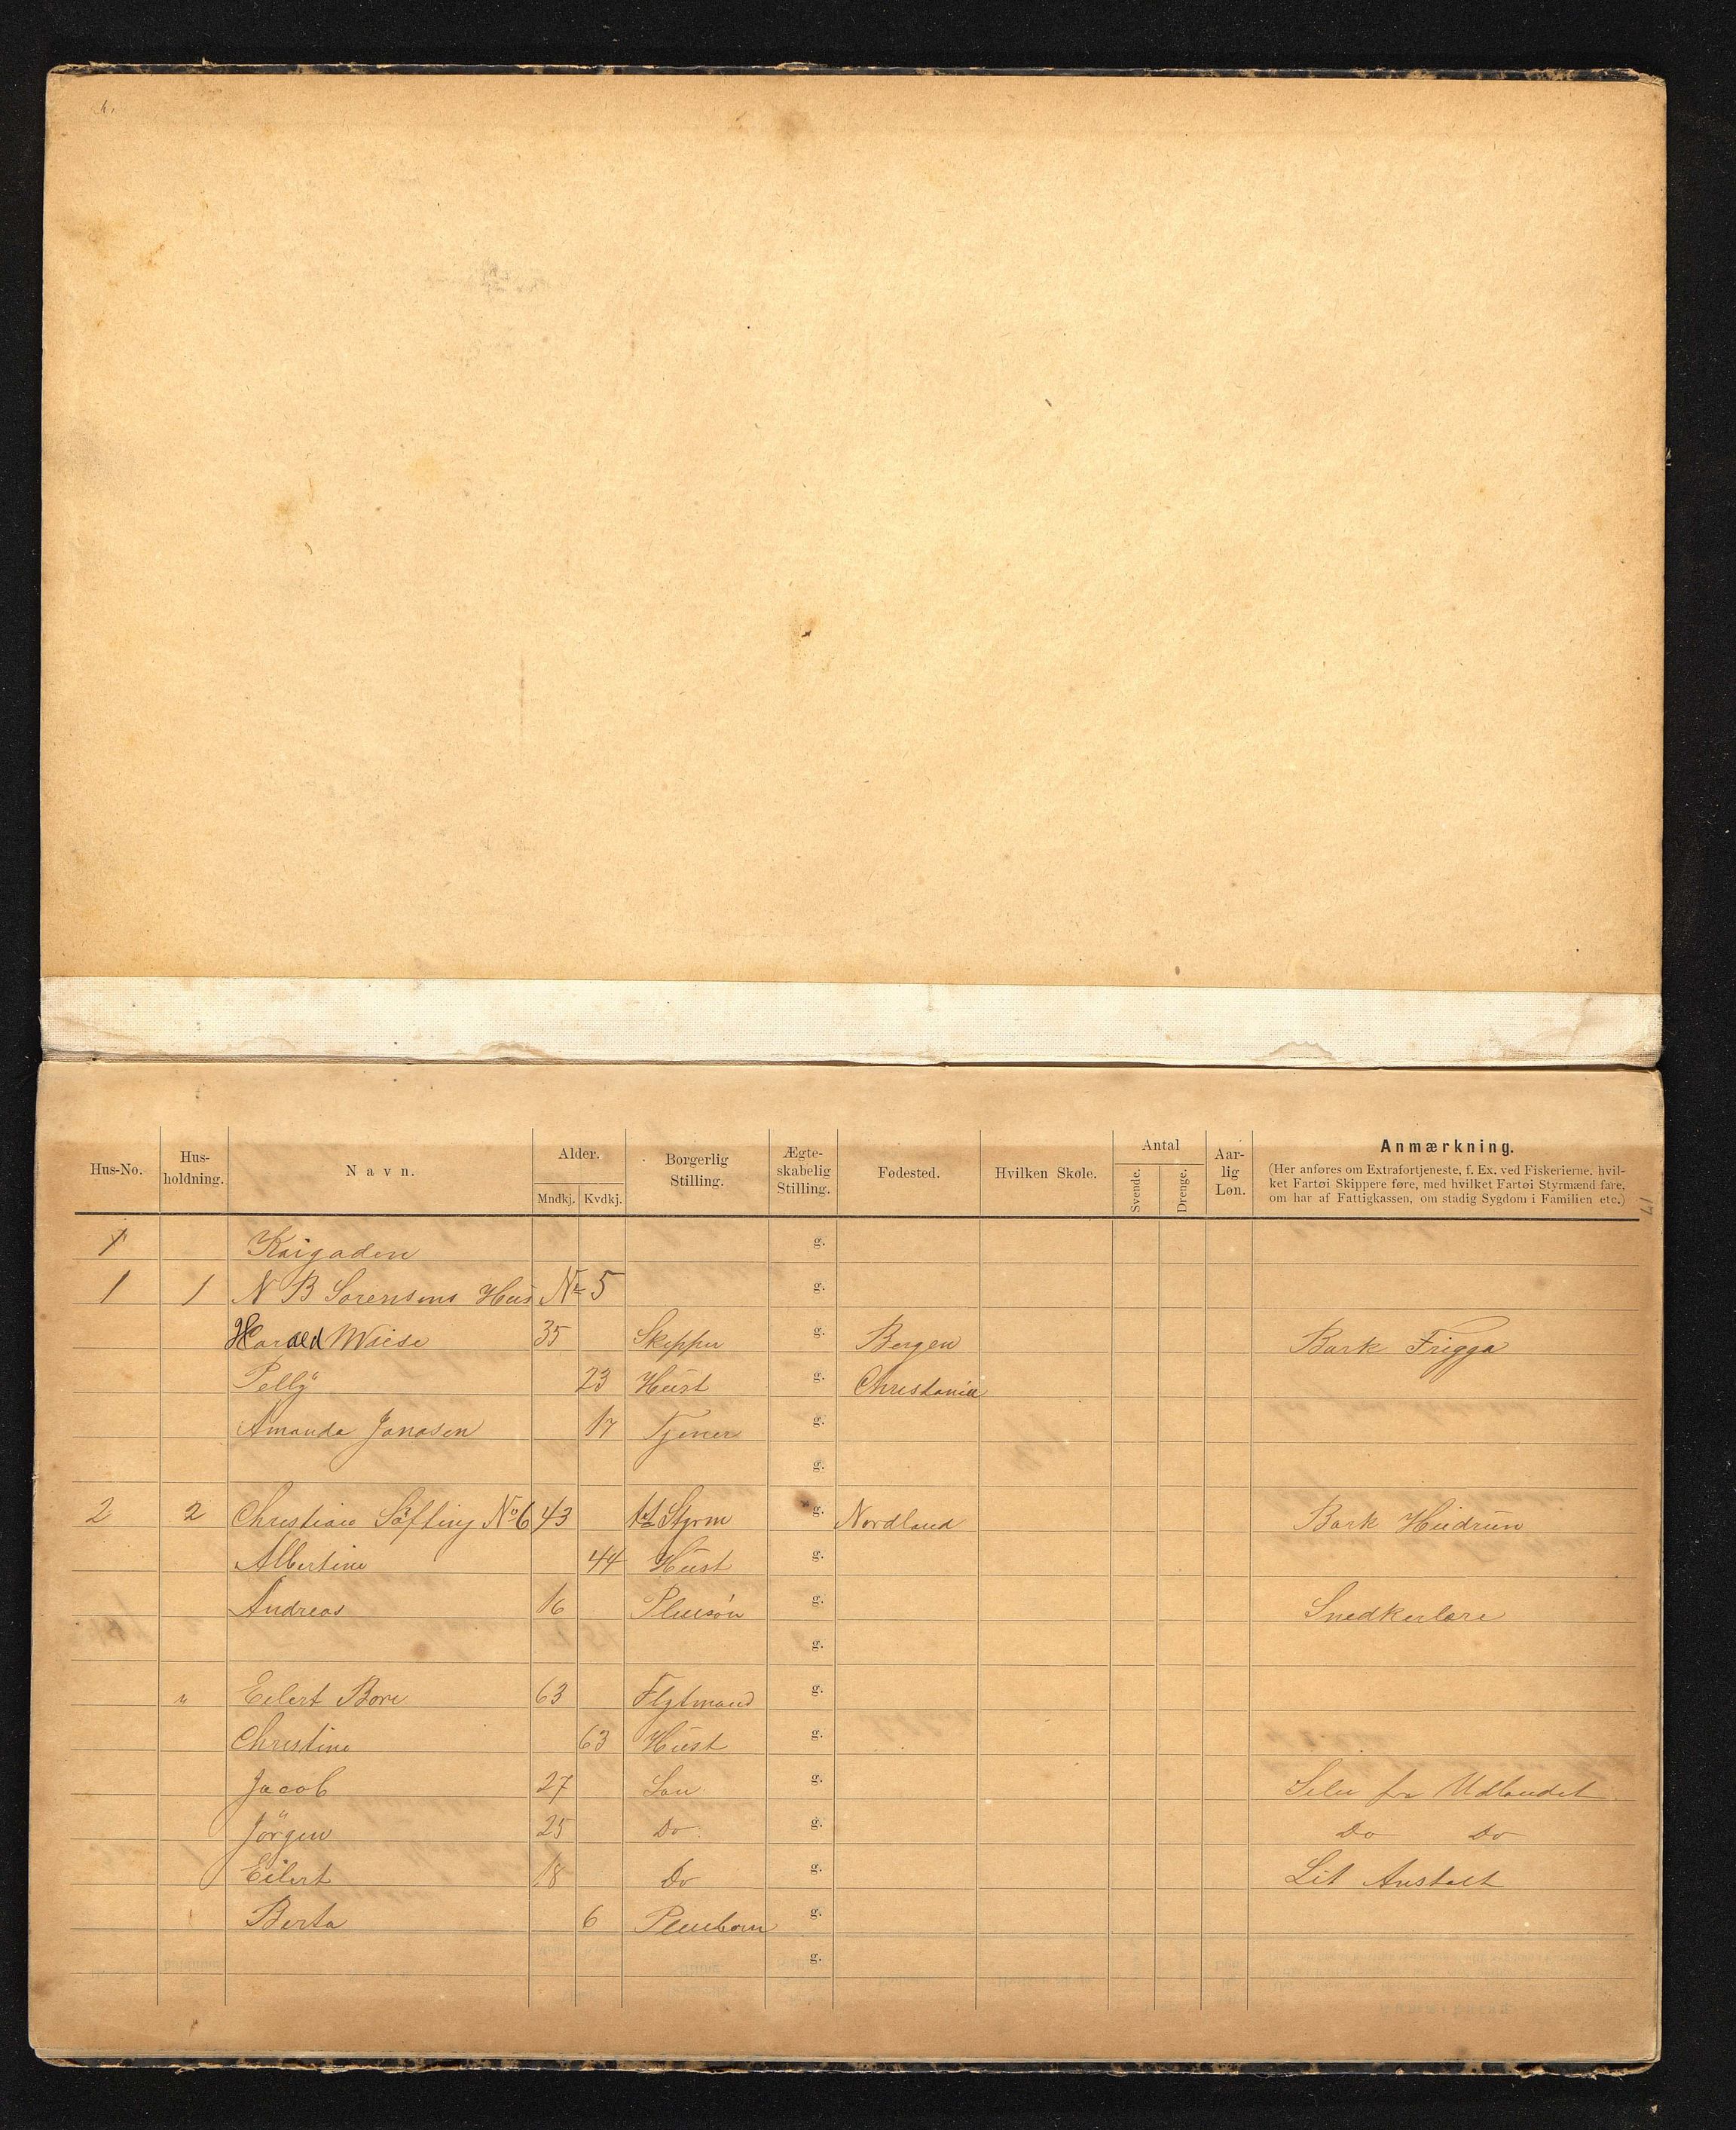 Hus-No. Hus-holdning. Navn. Alder. Mndkj. Kvdkj. Borgerlig Stilling. Ægte-skabelig Stilling. Fødested. Hvilken Skøle. Antal Svende. Drenge. Aar-lig Løn. Anmærkning.
(Her anføres om Extrafortjeneste, f. Ex. ved Fiskerierne, hvil-
ket Fartøi Skippere føre, med hvilket Fartøi Styrmænd fare,
om har af Fattigkassen, om stadig Sygdom i Familien etc.)
Kaigaden g.
1 1 N B Sorensens Hus No 5 g.
Harald Wiese 35 Skipper g. Bergen Bark Frigga
Pelly 23 Hust g. Christania
Amanda Janasen 17 Tjener g.
g.
2 2 Christian Söfting No 6 43 1st Styrm g. Nordland Bark Heidrun
Albertine 44 Hust g.
Andreas 16 Pleiesön g. Snedkerlære
g.
" Eilert Bore 63 Flytmand g.
Christine 63 Hust g.
Jacob 27 Sön g. Seiler fra Udlandet
Jörgen 25 Do g. Do Do
Eilert 18 Do g. Lit Anstalt
Berta 6 Pleiebarn g.
g.